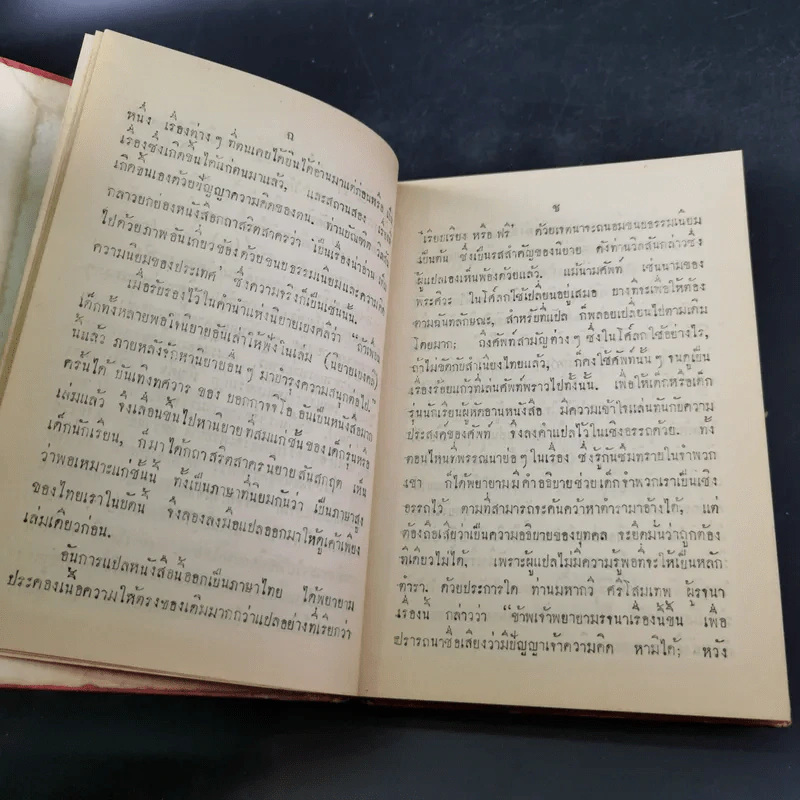 ถ
หนึ่ง เรื่องต่างๆ ที่ตนเคยได้ยินได้อ่านมาแต่ก่อนหรือ
เรื่องซึ่งเกิดขึ้นได้แก่ตนมาแล้ว, และสถานสอง เรื่องที่
เกิดขึ้นเองด้วยปัญญาความคิดของตน. ท่านบัณฑิต
กล่าวยกย่องหนังสือกถาสริตสาครว่า 'เป็นเรื่องน่าอ่าน
ไปด้วยภาพอันเกี่ยวข้องด้วยขนบธรรมเนียมและความคิด
ความนิยมของประเทศ' ซึ่งความจริงก็เป็นเช่นนั้น.
เมื่อรับรองไว้ในคำนำแห่งนิยายเบงคลีว่า "ถ้าเพื่อน
เด็กทั้งหลายพอใจนิยายอันเล่าให้ฟังในเล่ม (นิยายเบงคลี)
นี้แล้ว ภายหลังจักหานิยายอื่นๆ มาบำรุงความสนุกต่อไป."
ครั้นได้ บันเทิงทศวาร ของ บอกกาจจิโอ อันเป็นหนังสือมาก
เล่มแล้ว จึงเลื่อนขึ้นไปหานิยายที่สมแก่ชั้นของเด็กรุ่นหรือ
เด็กนักเรียน, ก็มาได้กถาสริตสาครนิยายสันสกฤต เห็น
ว่าพอเหมาะแก่ชั้นนี้ ทั้งเป็นภาษาที่นิยมกันว่า เป็นภาษาสูง
ของไทยเราในบัดนี้ จึงลองลงมือแปลออกมาให้ดูเค้าเพียง
เล่มเดียวก่อน.
อันการแปลหนังสือนี้ออกเป็นภาษาไทย ได้พยายาม
ประคองเนื้อความให้ตรงของเดิมมากกว่าแปลอย่างที่เรียกว่า
ช
'เรียบเรียง หรือ ฟรี' ด้วยเจตนาจะถนอมขนบธรรมเนียม
เป็นต้น ซึ่งเป็นรสสำคัญของนิยาย ดังท่านวิลสันกล่าวซึ่ง
ผู้แปลเองเห็นพ้องด้วยแล้ว. แม้นามศัพท์ เช่นนามของ
พระศิวะ ในโศลกใช้เปลี่ยนอยู่เสมอ บางทีจะเพื่อให้ต้อง
ตามฉันทลักษณะ, สำหรับที่แปล ก็พลอยเปลี่ยนไปตามเดิม
โดยมาก; ถึงศัพท์สามัญต่างๆ ซึ่งในโศลกใช้อย่างไร,
ถ้าไม่ขัดกับสำเนียงไทยแล้ว, ก็คงใช้ศัพท์นั้นๆ จนดูเป็น
เรื่องร้อยแก้วที่เล่นศัพท์พราวไปทั้งนั้น. เพื่อให้เด็กหรือเด็ก
รุ่นนักเรียนผู้หัดอ่านหนังสือ มีความเข้าใจแล่นทันกับความ
ประสงค์ของศัพท์ จึงลงคำแปลไว้ในเชิงอรรถด้วย. ทั้ง
ตอนไหนที่พรรณนาย่อๆ ในเรื่อง ซึ่งรู้กันซึมทราบในจำพวก
เขา ก็ได้พยายามมีคำอธิบายช่วยเด็กจำพวกเราเป็นเชิง
อรรถไว้ ตามที่สามารถจะค้นคว้าหาตำรามาอ้างได้, แต่
ต้องถือเสียว่าเป็นความอธิบายของบุทคล จะยึดมั่นว่าถูกต้อง
ทีเดียวไม่ได้. เพราะผู้แปลไม่มีความรู้พอที่จะให้เป็นหลัก
ตำรา. ด้วยประการใด ท่านมหากวี ศรีโสมเทพ ผู้รจนา
เรื่องนี้ กล่าวว่า "ข้าพเจ้าพยายามรจนาเรื่องนี้ขึ้น เพื่อ
ปรารถนาชื่อเสียงว่ามีปัญญาเจ้าความคิด หามิได้; หวัง